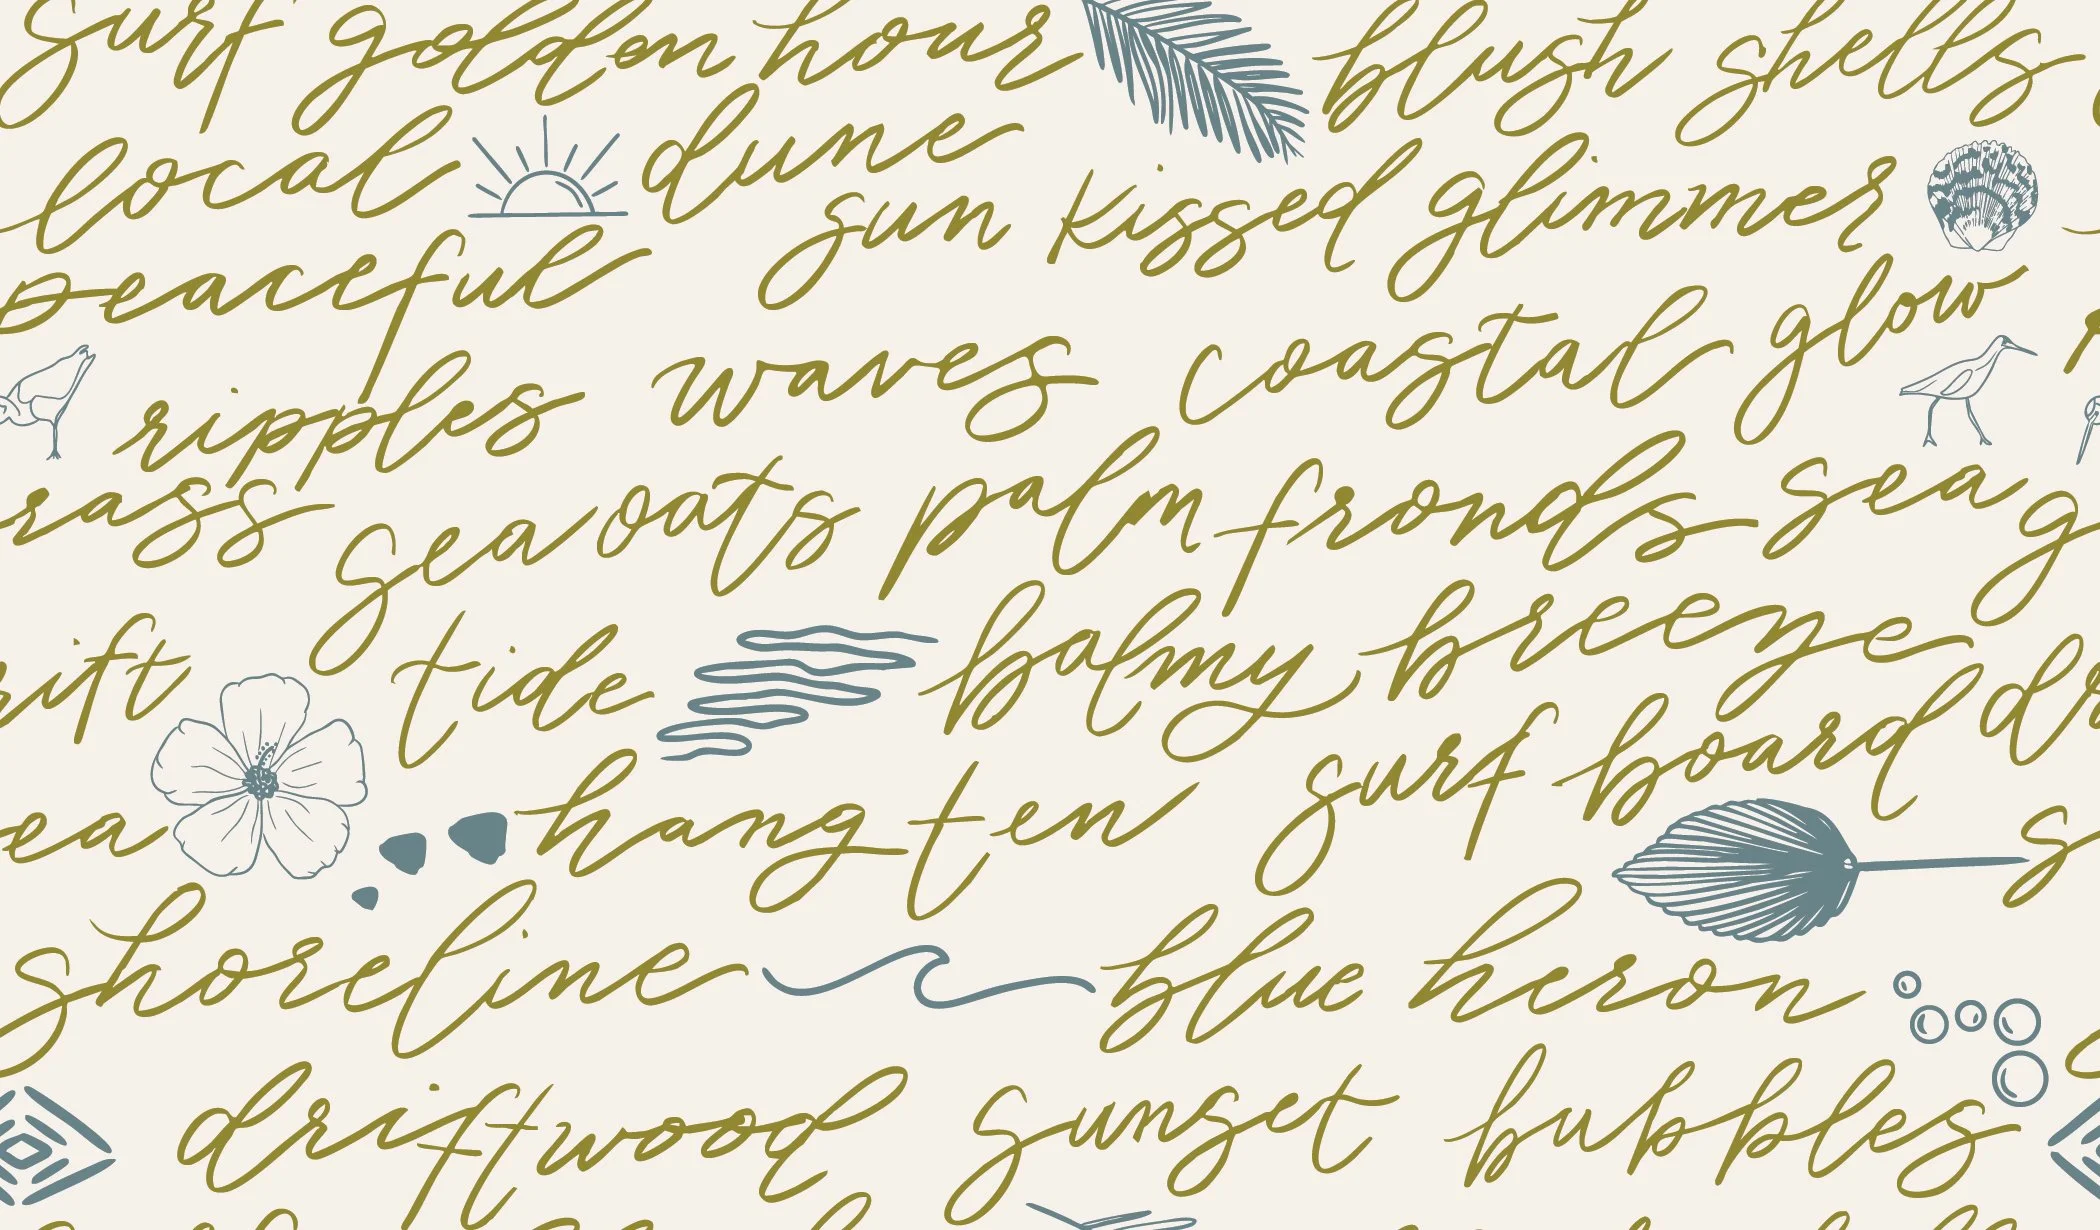 surf golden hour blush shells
local dune sun kissed glimmer
peaceful ripples waves coastal glow
rass sea oats palm fronds sea g
rift tide balmy breeze dr
ea hang ten surf board s
shoreline blue heron
driftwood sunset bubbles